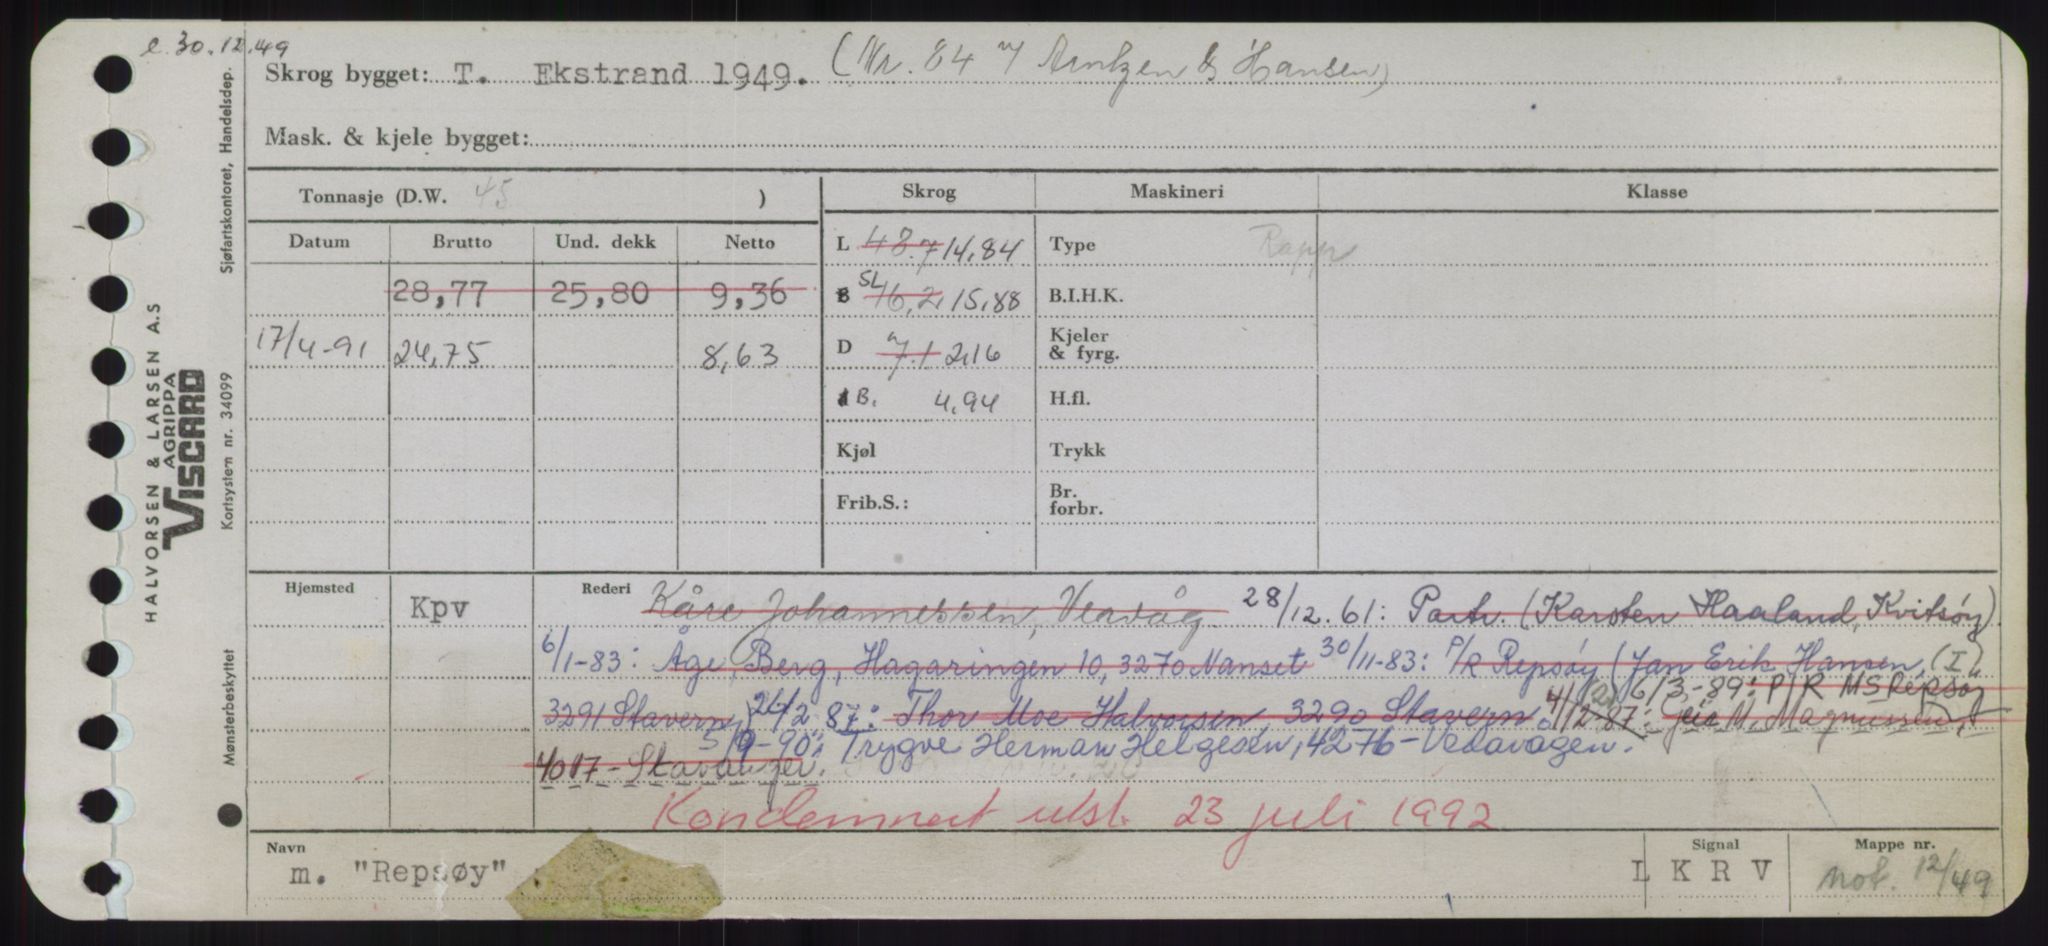 e. 30.12.49
Skrog bygget: T. Ekstrand 1949. (Nr. 84 Arntzen & Hansen)
Mask. & kjele bygget:
Tonnasje (D.W. 45 )
Skrog Maskineri Klasse
Datum Brutto Und. dekk Netto
L 48.7 14,84 Type Rapp
28,77 25,80 9,36
B SL 16,2 15,88 B.I.H.K.
17/4-91 24,75 8,63
D 7.1 2,16 Kjeler & fyrg.
B. 4,94 H.fl.
Kjøl Trykk
Frib.S.: Br. forbr.
Hjemsted Kpv
Rederi Kåre Johannessen, Veavåg 28/12.61: Partr. (Karsten Haaland, Kvitsøy)
6/1-83: Åge Berg, Hagaringen 10, 3270 Nanset 30/11-83: P/R Repsøy (Jan Erik Hansen, (I),
6/3-89: P/R MS Repsøy
3291 Stavern) 24/2 87: Thor Moe Halvorsen, 3290 Stavern. 4/12-87: M. Magnussen,
5/9-90: Trygve Herman Helgesen, 4276-Vedavågen.
4017-Stavanger.
Kondemnert utsl. 23 juli 1992
Navn m. "Repsøy"
Signal L K R V
Mappe nr. not. 12/49
HALVORSEN & LARSEN A.S
AGRIPPA
VISCARD
Sjøfartskontoret, Handelsdep.
Kortsystem nr. 34099
Mønsterbeskyttet